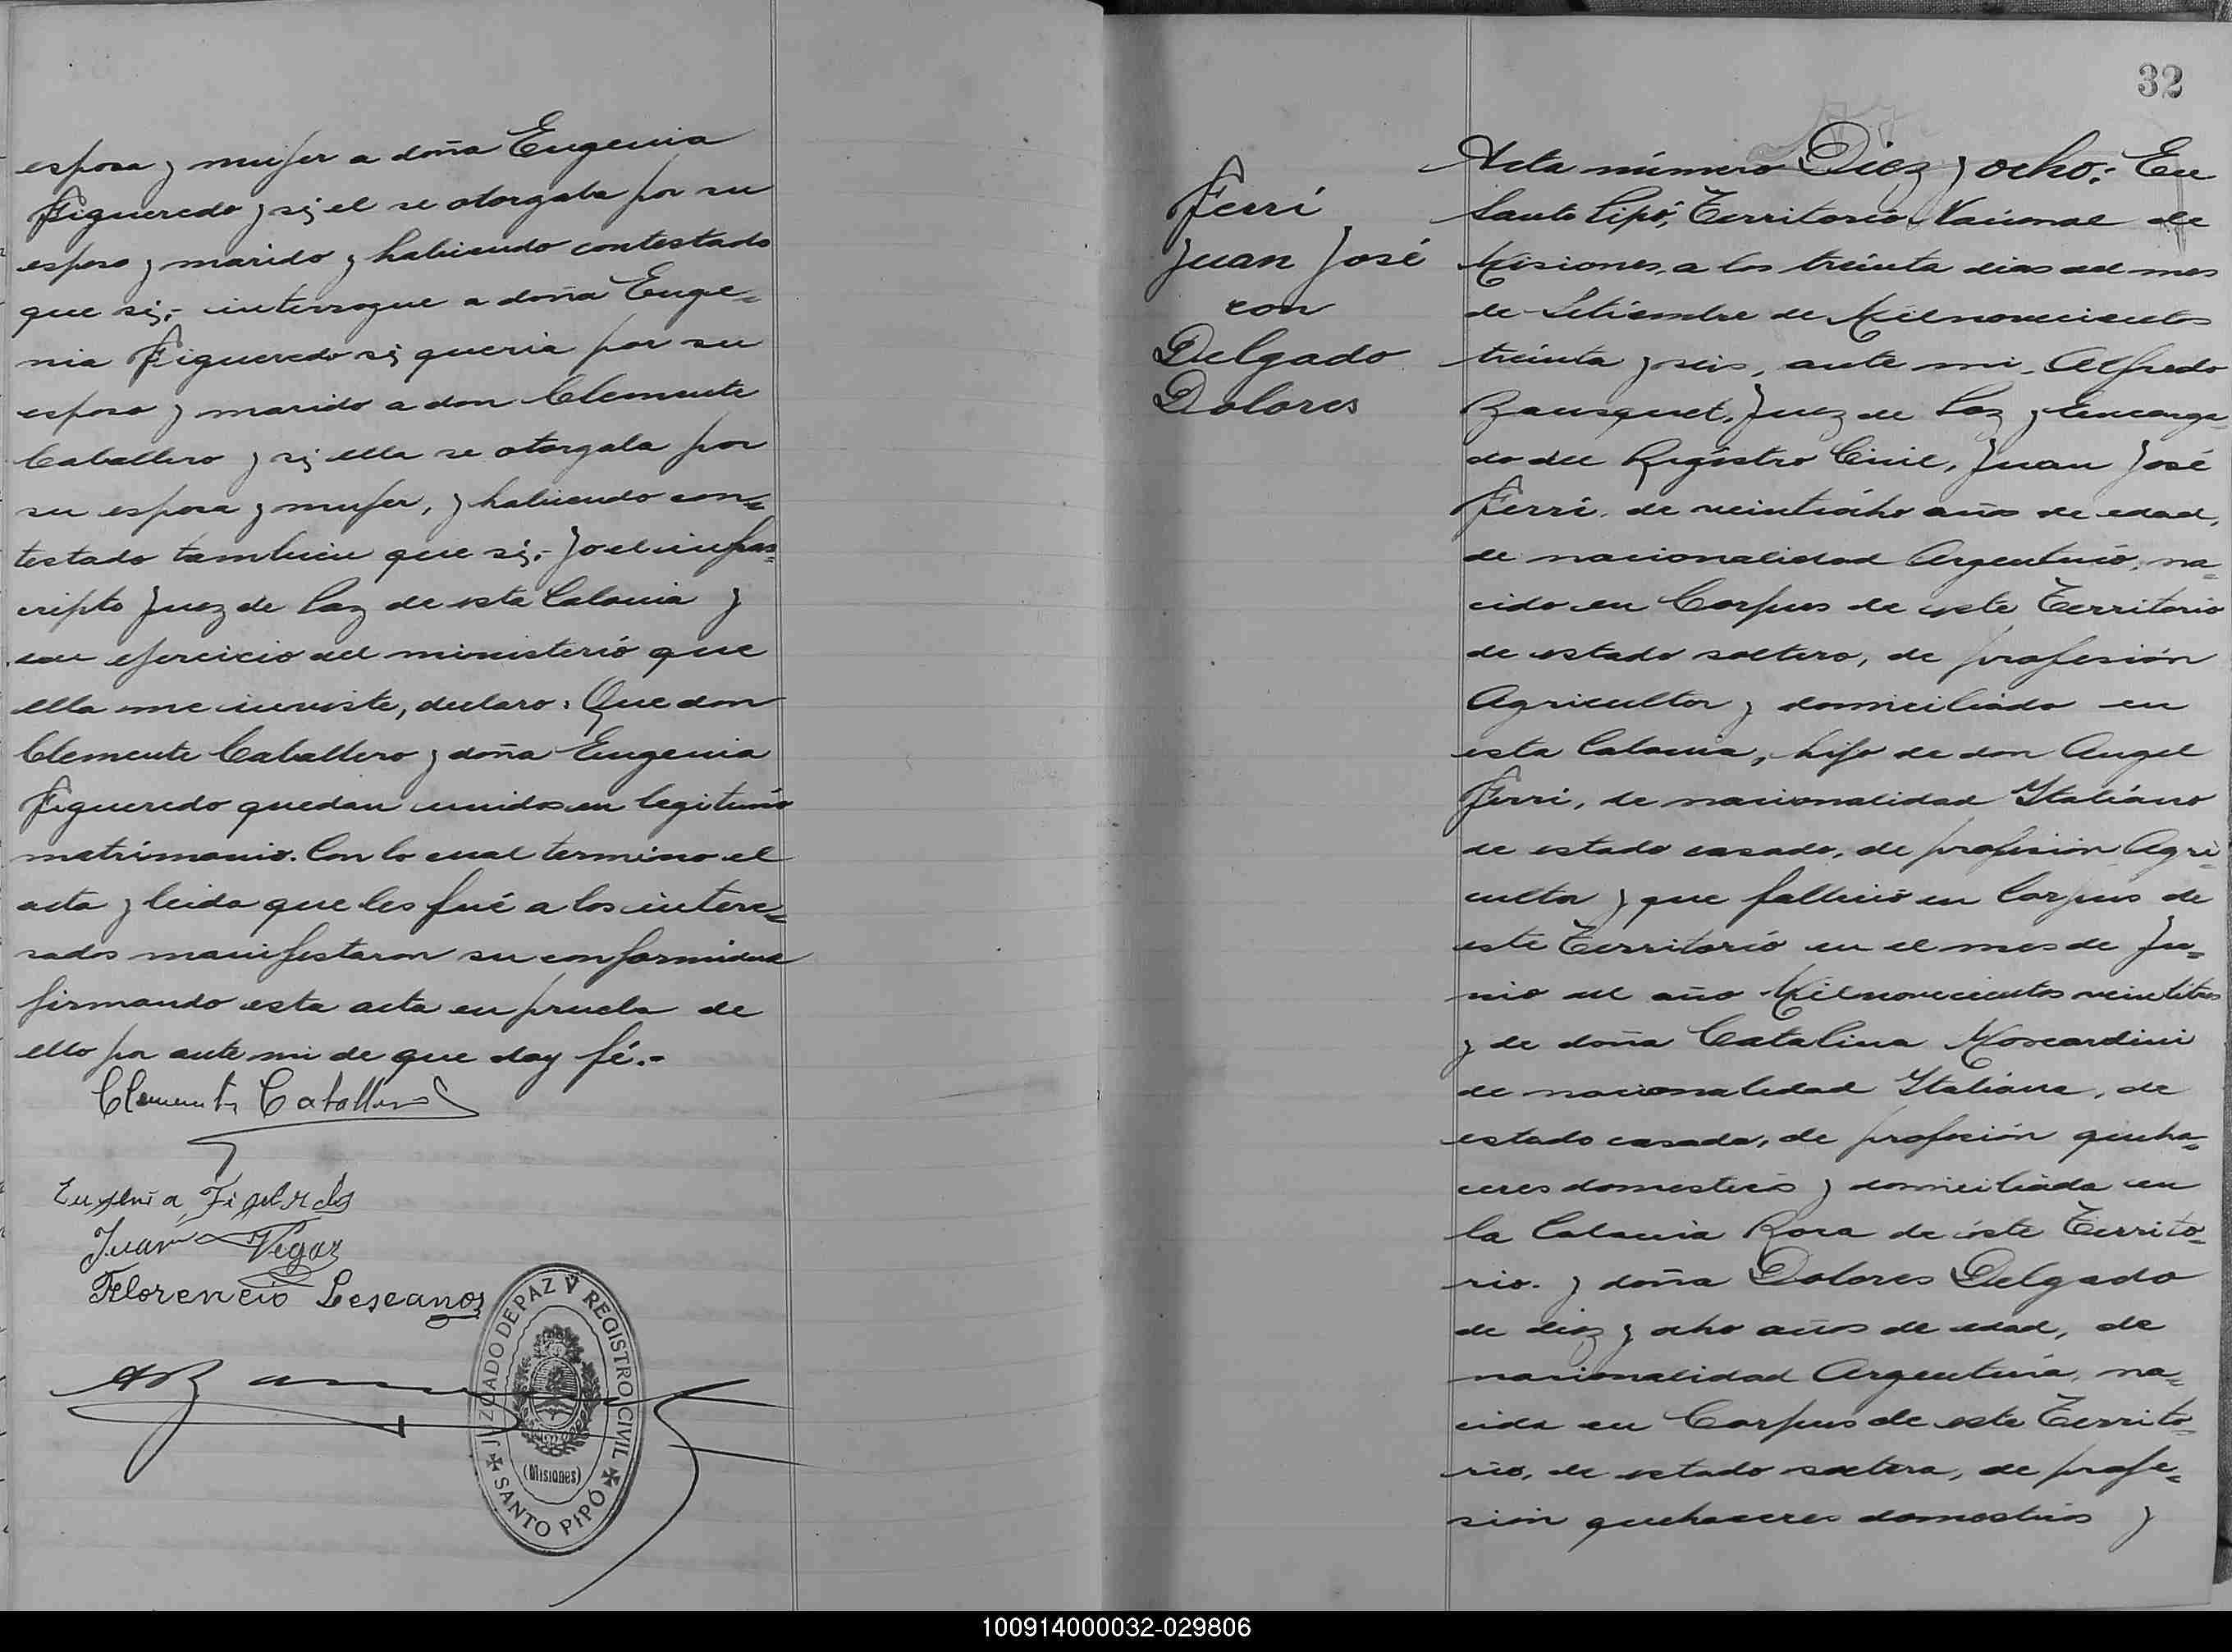 esposa y mujer a doña Eugenia
Figueredo y si el se otorgaba por su
esposo y marido y habiendo contestado
que si,- interrogue a doña Euge=
nia Figueredo si queria por su
esposo y marido a don Clemente
Caballero y si ella se otorgaba por
su esposa y mujer, y habiendo con=
testado tambien que si.- Yo el infras=
cripto Juez de Paz de esta Colonia y
en ejercicio del ministerio que
ella me inviste, declaro: Que don
Clemente Caballero y doña Eugenia
Figueredo quedan unidos en legitimo
matrimonio. Con lo cual termino el
acta y leida que les fué a los intere=
sados manifestaron su conformidad
firmando esta acta en prueba de
ello por ante mi de que doy fé.-
Clemente Caballero
Eugenia Figueredo
Juan Vegas
Florencio Lescano
JUZGADO DE PAZ Y REGISTRO CIVIL
(Misiones)
SANTO PIPÓ
32
Ferri
Juan José
con
Delgado
Dolores
Acta número Diez y ocho: En
Santo Pipó, Territorio Nacional de
Misiones, a los treinta dias del mes
de Setiembre de Mil novecientos
treinta y seis, ante mi, Alfredo
Juez de Paz y Encarga=
do del Registro Civil, Juan José
Ferri, de veintiocho años de edad,
de nacionalidad Argentino, na=
cido en Corpus de este Territorio
de estado soltero, de profesión
Agricultor y domiciliado en
esta Colonia, hijo de don Angel
Ferri, de nacionalidad Italiano
de estado casado, de profesión Agri=
cultor y que fallecio en Corpus de
este Territorio en el mes de Ju=
nio del año Mil novecientos veintitres
y de doña Catalina Moscardini
de nacionalidad Italiana, de
estado casada, de profesión queha=
ceres domesticos y domiciliada en
la Colonia Roca de este Territo=
rio. y doña Dolores Delgado
de diez y ocho años de edad, de
nacionalidad Argentina, na=
cida en Corpus de este Territo=
rio, de estado soltera, de profe=
sión quehaceres domesticos y
100914000032-029806